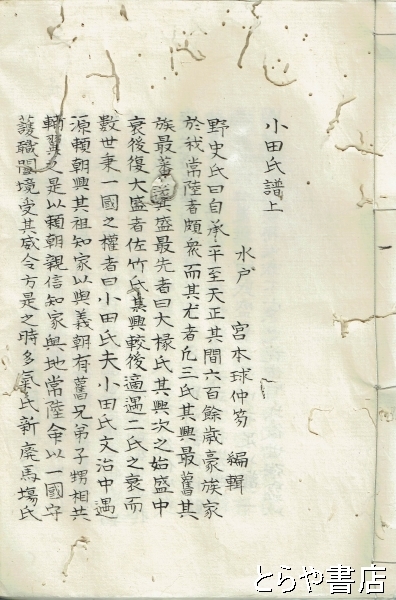 小田氏譜上
水戸 宮本球仲笏 編輯
野史氏曰自承平至天正其間六百餘歳豪族家
於我常陸者頗衆而其尤者凡三氏其興最舊其
族最蕃其盛最先者曰大掾氏其興次之始盛中
衰後復大盛者佐竹氏其興較後適遇二氏之衰而
數世秉一國之權者曰小田氏夫小田氏文治中遇
源頼朝興其祖知家以與義朝有舊兄弟子甥相共
輔翼之是以頼朝親信知家與地常陸命以一國守
護職闔境受其威令方是之時多氣氏新廃馬塲氏
とらや書店